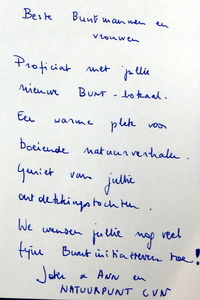 Beste Buntmannen en
vrouwen
Proficiat met jullie
nieuwe BUNT-lokaal.
Een warme plek voor
boeiende natuurverhalen.
Geniet van jullie
ontdekkingstochten.
We wensen jullie nog veel
fijne Buntinitiatieven toe!
& ANN en
NATUURPUNT CVN